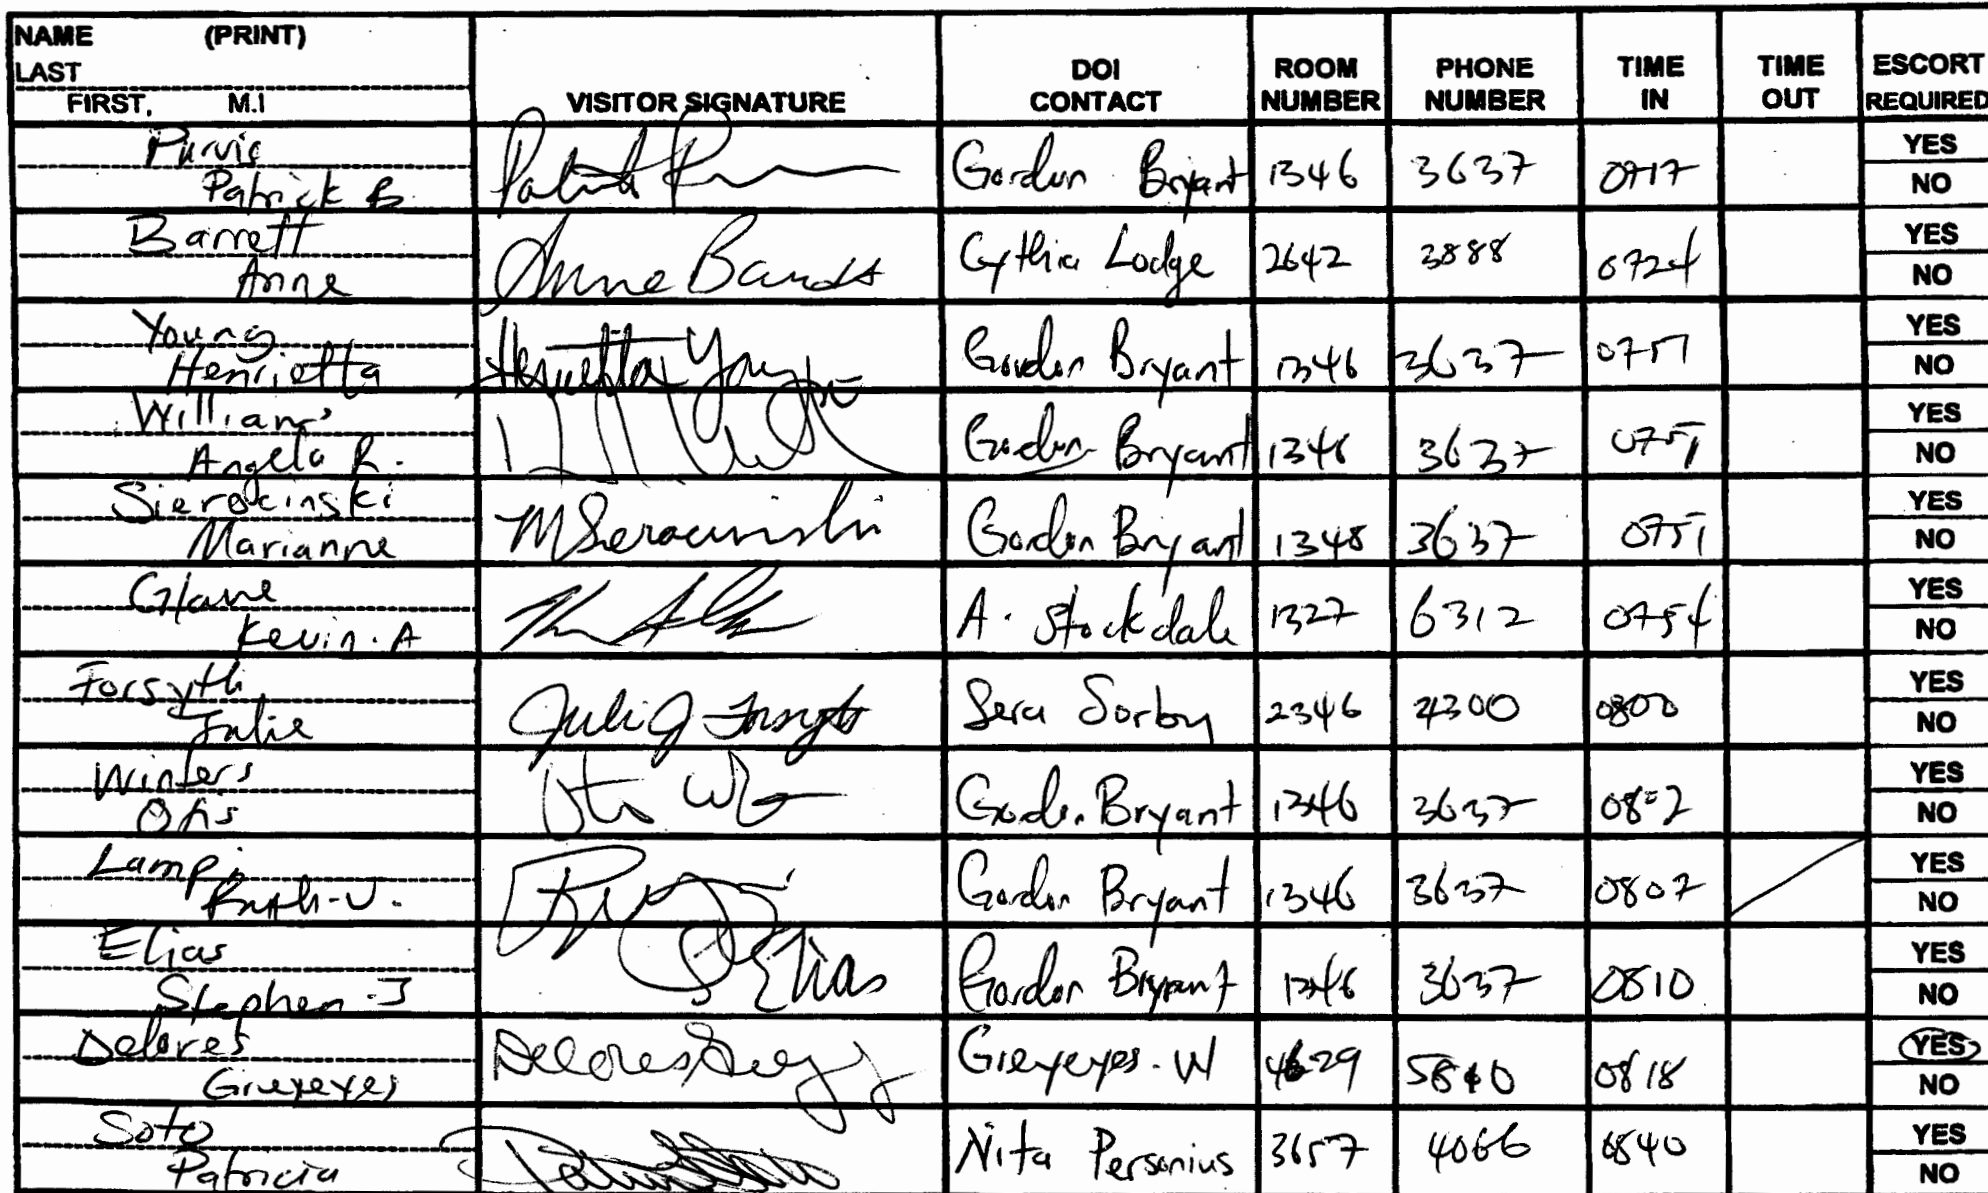 NAME (PRINT)
LAST
FIRST, M.I
VISITOR SIGNATURE
DOI CONTACT
ROOM NUMBER
PHONE NUMBER
TIME IN
TIME OUT
ESCORT REQUIRED
Purvis
Patrick B. Gordon Bryant 1346 3637 0717 YES NO
Barrett
Anne Anne Cythia Lodge 2642 3888 0724 YES NO
Young
Henrietta Henrietta Young Gordon Bryant 1346 3637 0751 YES NO
Williams
Angela R. Gordon Bryant 1346 3637 0751 YES NO
Sierocinski
Marianne M Sierocinski Gordon Bryant 1348 3637 0751 YES NO
Kevin. A A. Stockdale 1327 6312 0754 YES NO
Forsyth
Julie Julie J Forsyth Sera Sorby 2346 4300 0800 YES NO
Winters
Otis Gordon Bryant 1346 3637 0802 YES NO
Lampi
Ruth-J. Gordon Bryant 1346 3637 0807 YES NO
Elias
Stephen J S Elias Gordon Bryant 1346 3637 0810 YES NO
Delores
Greyeyes Delores Greyeyes-W 4629 0818 YES NO
Soto
Patricia Nita Personius 3657 4066 0840 YES NO